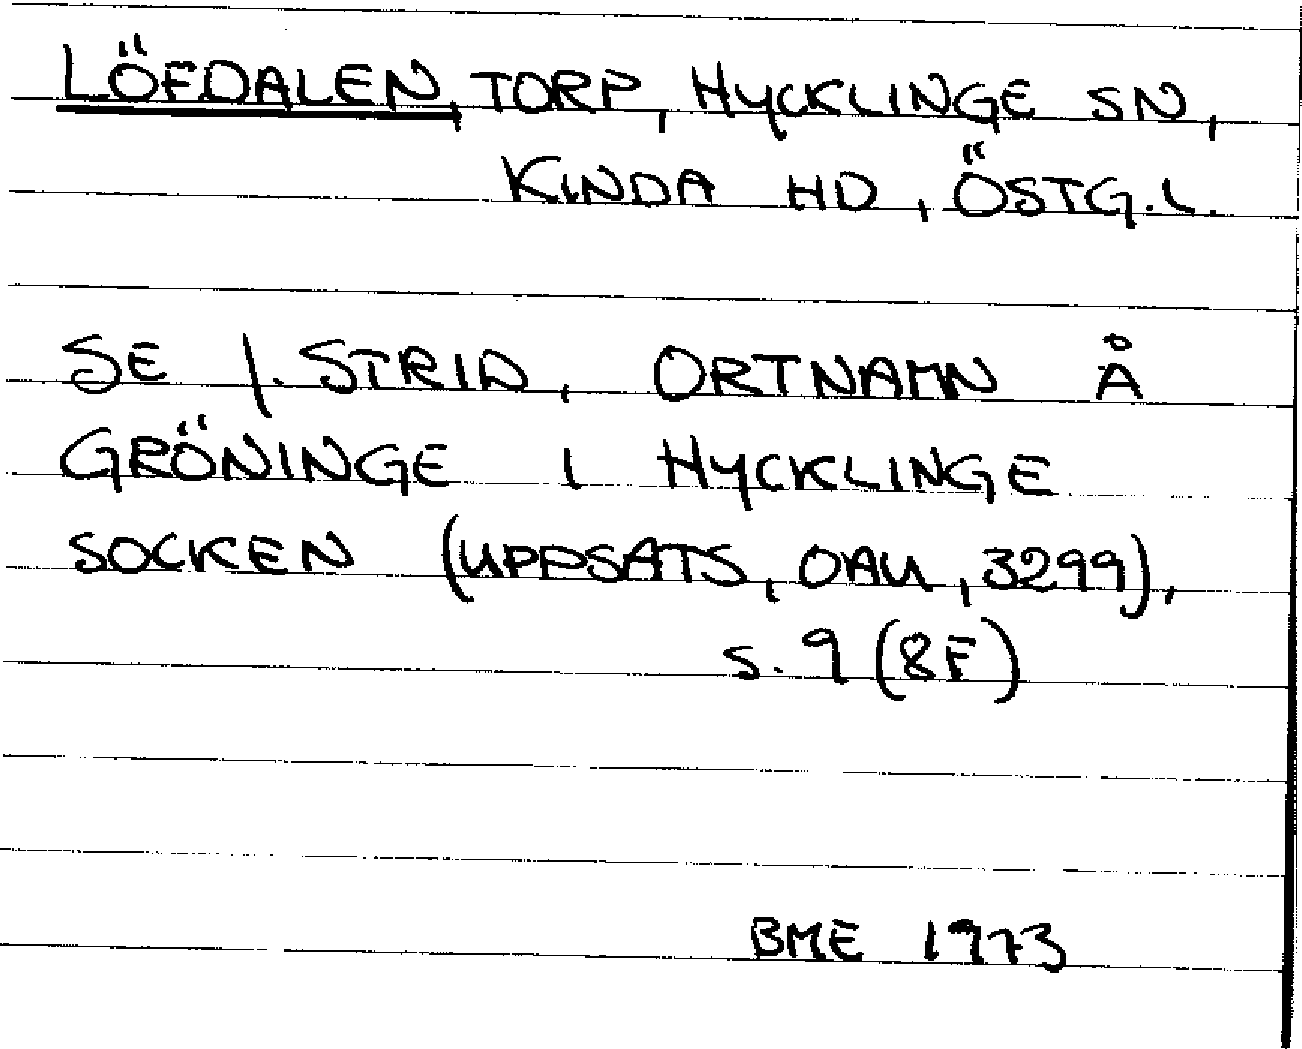 LÖFDALEN, TORP, HYCKLINGE SN,
KINDA HD, ÖSTG.L.
SE J. STRID, ORTNAMN Å
GRÖNINGE I HYCKLINGE
SOCKEN (UPPSATS, OAU, 3299),
S. 9 (8F)
BME 1973